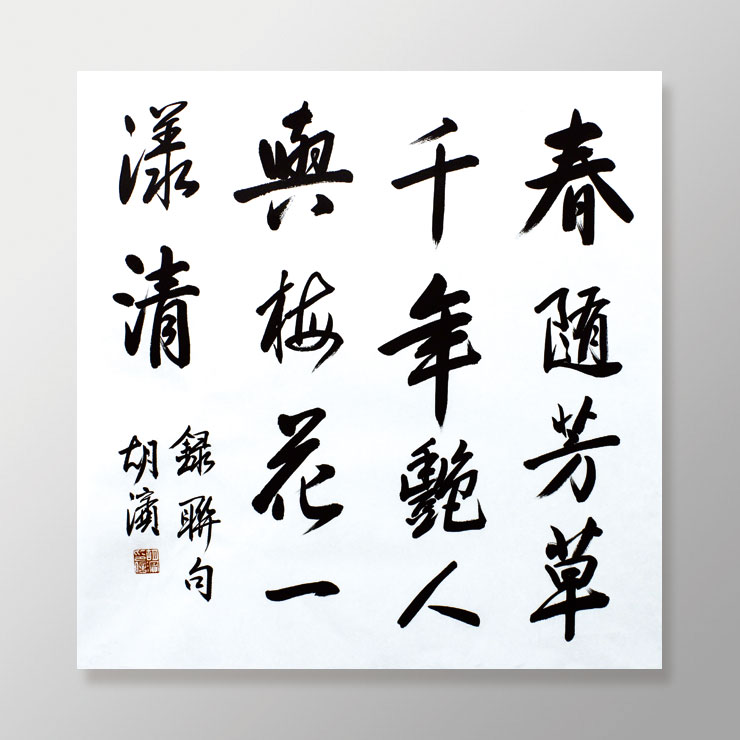 春随芳草
千年艷人
與梅花一
漾清
録聯句
胡濱